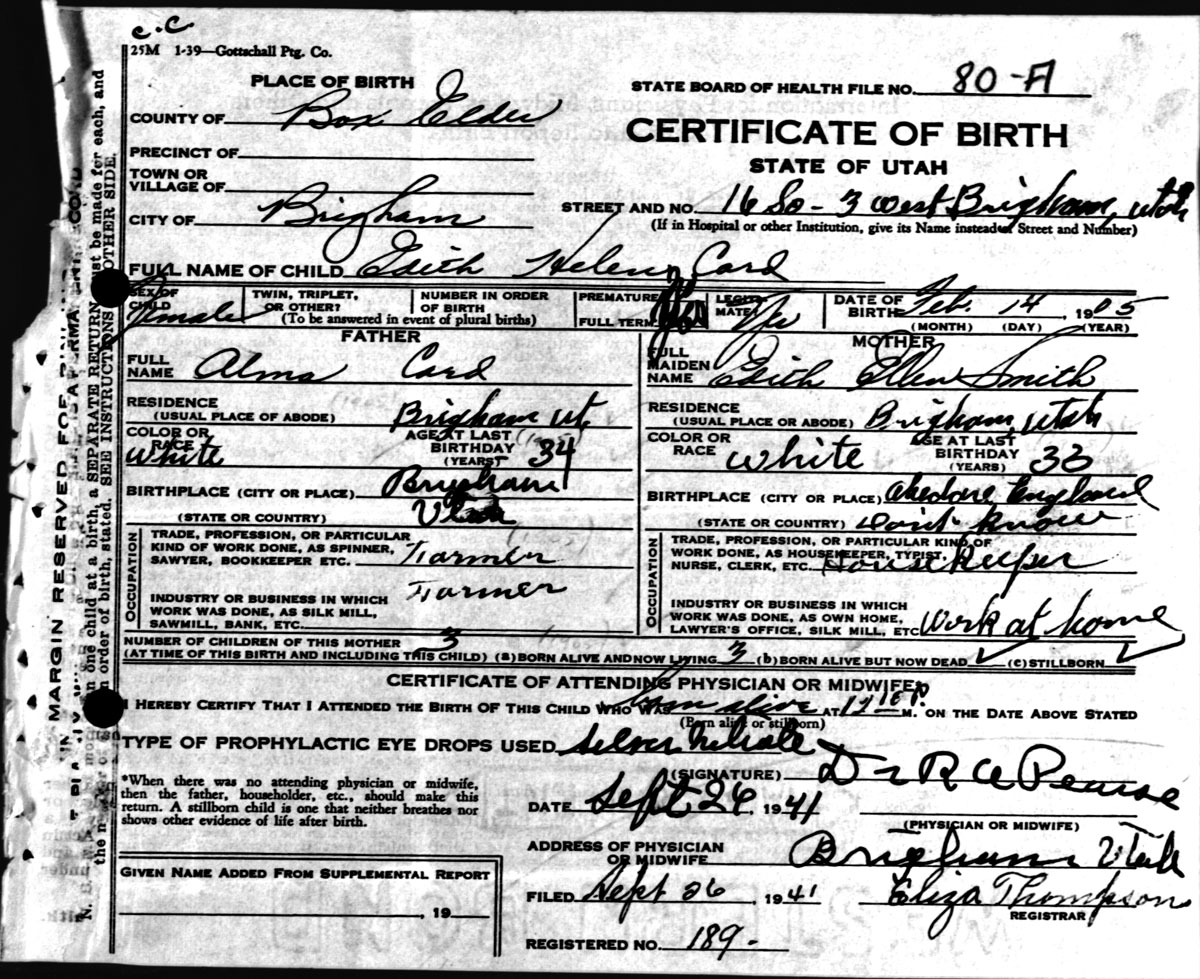 c.c
25M 1-39—Gottschall Ptg. Co.
PLACE OF BIRTH
STATE BOARD OF HEALTH FILE NO. 80-A
COUNTY OF Box Elder
CERTIFICATE OF BIRTH
PRECINCT OF
STATE OF UTAH
TOWN OR
VILLAGE OF
CITY OF Brigham
STREET AND NO. 16 So - 3 West Brigham, Utah
(If in Hospital or other Institution, give its Name instead of Street and Number)
FULL NAME OF CHILD Edith Helen Card
SEX OF CHILD Female
TWIN, TRIPLET, OR OTHER?
NUMBER IN ORDER OF BIRTH
(To be answered in event of plural births)
PREMATURE
FULL TERM Yes
LEGITIMATE? Yes
DATE OF BIRTH Feb. 14, 1905
(MONTH) (DAY) (YEAR)
FATHER
FULL NAME Alma Card
RESIDENCE
(USUAL PLACE OF ABODE) Brigham Ut.
COLOR OR RACE White
AGE AT LAST BIRTHDAY (YEARS) 34
BIRTHPLACE (CITY OR PLACE) Brigham
(STATE OR COUNTRY) Utah
OCCUPATION
TRADE, PROFESSION, OR PARTICULAR
KIND OF WORK DONE, AS SPINNER,
SAWYER, BOOKKEEPER ETC. Farmer
INDUSTRY OR BUSINESS IN WHICH Farmer
WORK WAS DONE, AS SILK MILL,
SAWMILL, BANK, ETC.
MOTHER
FULL MAIDEN NAME Edith Ellen Smith
RESIDENCE
(USUAL PLACE OR ABODE) Brigham, Utah
COLOR OR RACE White
AGE AT LAST BIRTHDAY (YEARS) 33
BIRTHPLACE (CITY OR PLACE) England
(STATE OR COUNTRY) Don't Know
OCCUPATION
TRADE, PROFESSION, OR PARTICULAR KIND OF
WORK DONE, AS HOUSEKEEPER, TYPIST,
NURSE, CLERK, ETC. House Keeper
INDUSTRY OR BUSINESS IN WHICH
WORK WAS DONE, AS OWN HOME,
LAWYER'S OFFICE, SILK MILL, ETC. Work at home
NUMBER OF CHILDREN OF THIS MOTHER 3
(AT TIME OF THIS BIRTH AND INCLUDING THIS CHILD) (a) BORN ALIVE AND NOW LIVING 3 (b) BORN ALIVE BUT NOW DEAD ✓ (c) STILLBORN ✓
CERTIFICATE OF ATTENDING PHYSICIAN OR MIDWIFE
I HEREBY CERTIFY THAT I ATTENDED THE BIRTH OF THIS CHILD WHO WAS born alive AT 12 10 P. M. ON THE DATE ABOVE STATED
(Born alive or stillborn)
TYPE OF PROPHYLACTIC EYE DROPS USED Silver Nitrate
*When there was no attending physician or midwife,
then the father, householder, etc., should make this
return. A stillborn child is one that neither breathes nor
shows other evidence of life after birth.
(SIGNATURE) Dr R A Pearse
DATE Sept 26, 1941
(PHYSICIAN OR MIDWIFE)
ADDRESS OF PHYSICIAN
OR MIDWIFE Brigham Utah
GIVEN NAME ADDED FROM SUPPLEMENTAL REPORT
, 19
FILED Sept 26 1941 Eliza Thompson
REGISTRAR
REGISTERED NO. 189-